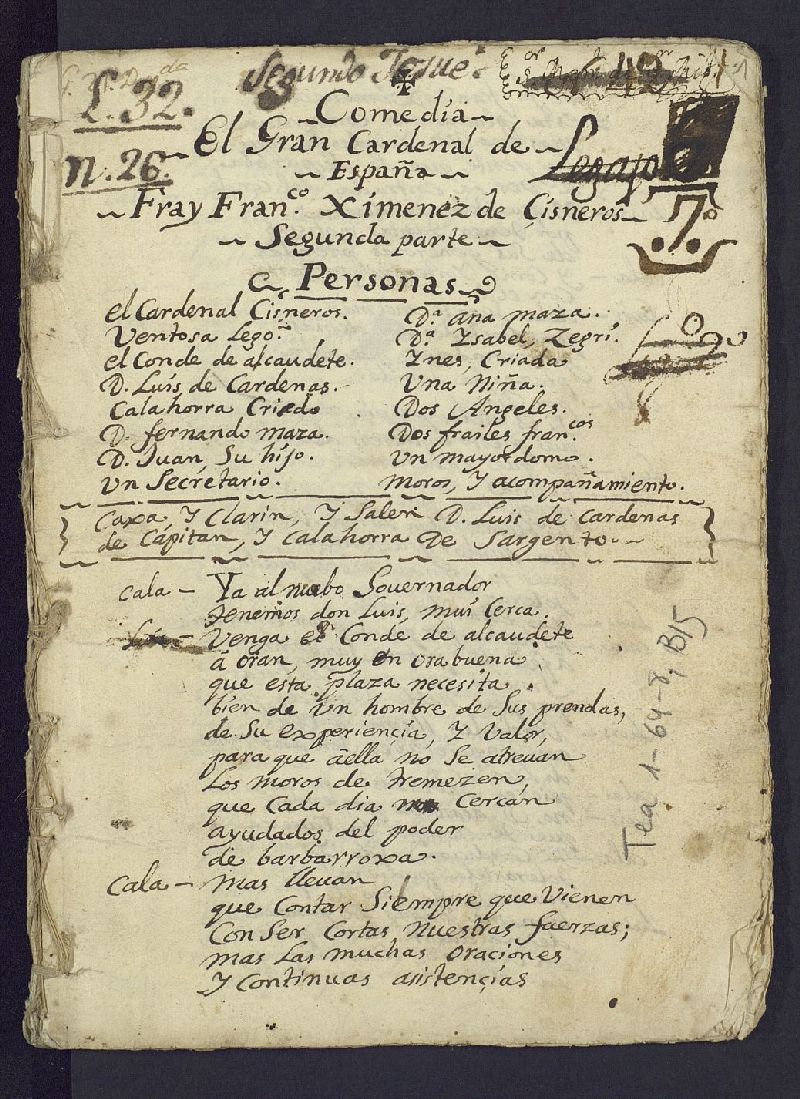 Segundo Josue
L. 32.
n. 26.
Comedia
El Gran Cardenal de
España
Legajo
7.º
Fray Fran.co Ximenez de Çisneros
Segunda parte
Personas
el Cardenal Cisneros.
Ventosa Lego.
el Conde de alcaudete.
D. Luis de Cardenas.
Calahorra Criado
D. fernando maza.
D. Juan Su hijo.
un Secretario.
D.ª ana maza.
D.ª Ysabel, Zegri.
Ynes, Criada
Una Niña.
Dos Angeles.
Dos frailes fran.cos
un mayordomo.
moros, Y acompañamiento.
Caxa, Y Clarin, Y Salen D. Luis de Cardenas
de Capitan, Y Calahorra De Sargento.
Cala - Ya al nuebo Governador
tenemos don Luis, mui Cerca.
Luis - Venga el Conde de alcaudete
a oran, muy en orabuena.
que esta plaza necesita
bien de un hombre de Sus prendas,
de Su experiençia, Y Valor,
para que aella no Se atrevan
Los moros de tremezen,
que Cada dia Cercan
ayudados del poder
de barbarroxa.
Cala - mas llevan
que Contar Siempre que Vienen
Con Ser Cortas nuestras fuerzas;
mas Las muchas oraciones
Y Continuas asistençias
Tea 1-64-8, B15